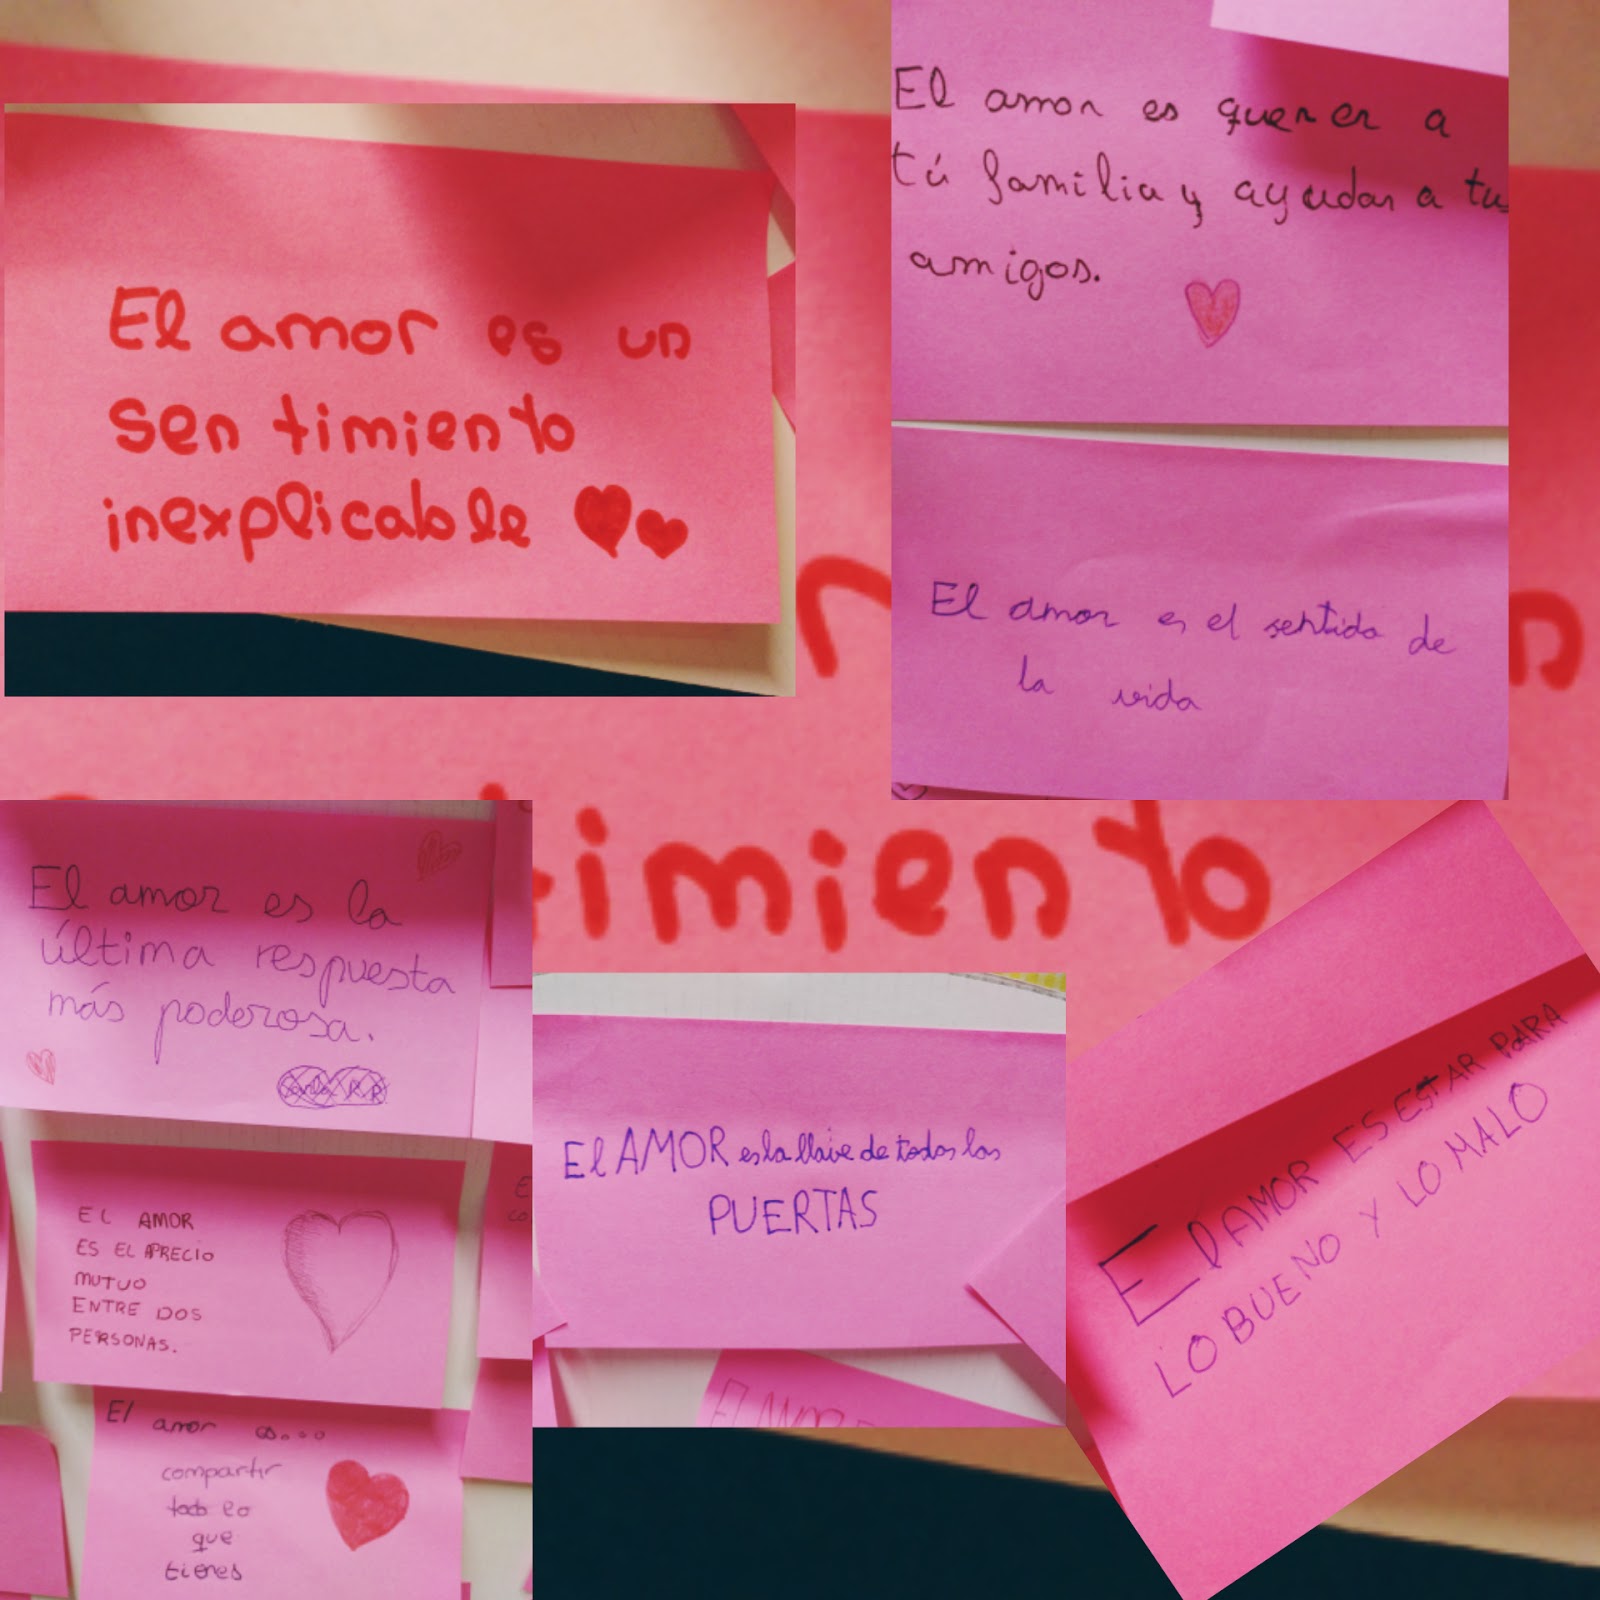 El amor es un
sentimiento
inexplicable
El amor es querer a
tú familia y ayudar a tus
amigos.
El amor es el sentido de
la vida
timiento
El amor es la
última respuesta
más poderosa.
EL AMOR
ES EL APRECIO
MUTUO
ENTRE DOS
PERSONAS.
El amor es...
compartir
todo lo
que
tienes
El AMOR es la llave de todas las
PUERTAS
El AMOR
El AMOR ES ESTAR PARA
LO BUENO Y LO MALO